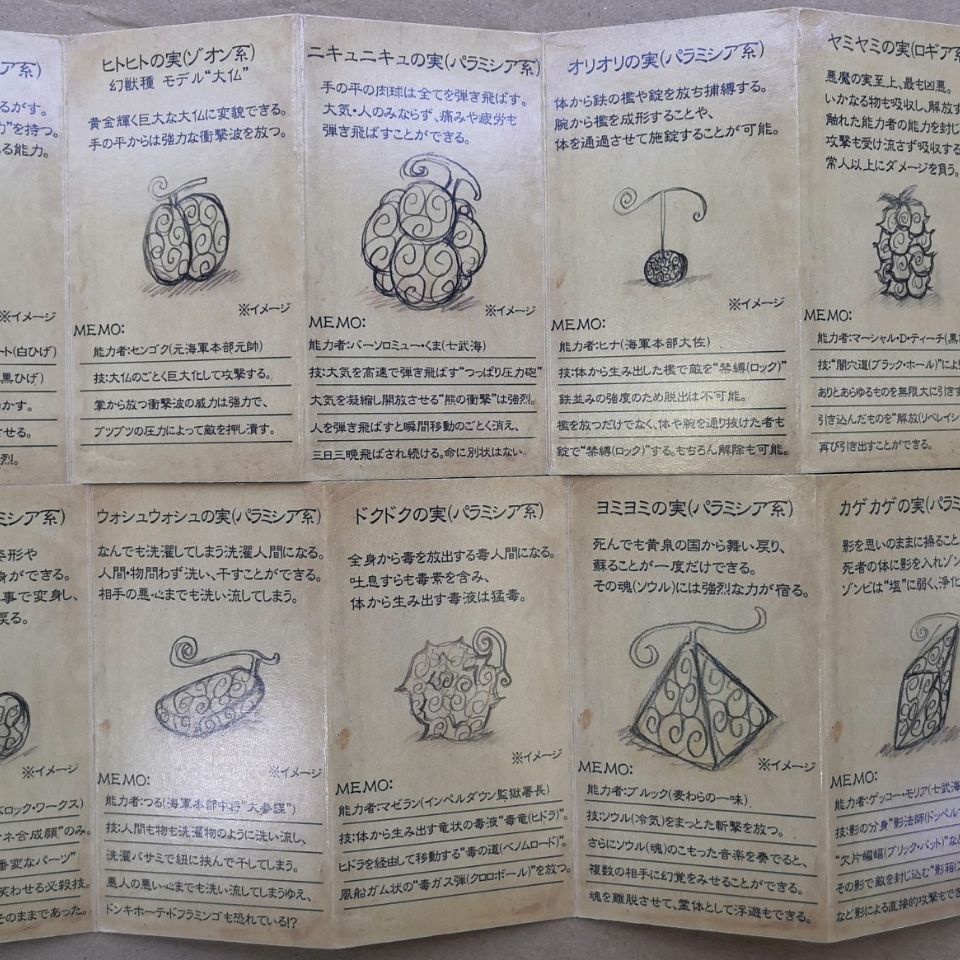 ア系)
るがす。
力”を持つ。
る能力。
※イメージ
ート(白ひげ)
黒ひげ)
かす。
させる。
烈。
ヒトヒトの実(ゾオン系)
幻獣種 モデル“大仏”
黄金輝く巨大な大仏に変貌できる。
手の平からは強力な衝撃波を放つ。
※イメージ
MEMO:
能力者:センゴク(元海軍本部元帥)
技:大仏のごとく巨大化して攻撃する。
掌から放つ衝撃波の威力は強力で、
ブツブツの圧力によって敵を押し潰す。
ニキュニキュの実(パラミシア系)
手の平の肉球は全てを弾き飛ばす。
大気・人のみならず、痛みや疲労も
弾き飛ばすことができる。
※イメージ
MEMO:
能力者:バーソロミュー・くま(七武海)
技:大気を高速で弾き飛ばす“つっぱり圧力砲”
大気を凝縮し開放させる“熊の衝撃”は強烈。
人を弾き飛ばすと瞬間移動のごとく消え、
三日三晩飛ばされ続ける。命に別状はない。
オリオリの実(パラミシア系)
体から鉄の檻や錠を放ち捕縛する。
腕から檻を成形することや、
体を通過させて施錠することが可能。
※イメージ
MEMO:
能力者:ヒナ(海軍本部大佐)
技:体から生み出した檻で敵を“禁縛(ロック)”
鉄並みの強度のため脱出は不可能。
檻を放つだけでなく、体や腕を通り抜けた者も
錠で“禁縛(ロック)”する。もちろん解除も可能。
ヤミヤミの実(ロギア系
悪魔の実史上、最も凶悪。
いかなる物も吸収し、解放す
触れた能力者の能力を封じ
攻撃も受け流さず吸収する
常人以上にダメージを負う。
※イメージ
MEMO:
能力者:マーシャル・D・ティーチ(黒
技:“闇穴道(ブラック・ホール)”によ
ありとあらゆるものを無限大に引きず
引き込んだものを“解放(リベレイシ
再び引き出すことができる。
ミシア系)
姿形や
身ができる。
事で変身し、
戻る。
※イメージ
バロック・ワークス)
ネ合成顔”のみ。
番変なパーツ”
笑わせる必殺技。
そのままであった。
ウォシュウォシュの実(パラミシア系)
なんでも洗濯してしまう洗濯人間になる。
人間・物問わず洗い、干すことができる。
相手の悪い心までも洗い流してしまう。
※イメージ
MEMO:
能力者:つる(海軍本部中将“大参謀”)
技:人間も物も洗濯物のように洗い流し、
洗濯バサミで紐に挟んで干してしまう。
悪人の悪い心までも洗い流してしまうゆえ、
ドンキホーテ・ドフラミンゴも恐れている!?
ドクドクの実(パラミシア系)
全身から毒を放出する毒人間になる。
吐息すらも毒素を含み、
体から生み出す毒液は猛毒。
※イメージ
MEMO:
能力者:マゼラン(インペルダウン監獄署長)
技:体から生み出す竜状の毒液“毒竜(ヒドラ)”。
ヒドラを経由して移動する“毒の道(ベノムロード)”。
風船ガム状の“毒ガス弾(クロロボール)”を放つ。
ヨミヨミの実(パラミシア系)
死んでも黄泉の国から舞い戻り、
蘇ることが一度だけできる。
その魂(ソウル)には強烈な力が宿る。
※イメージ
MEMO:
能力者:ブルック(麦わらの一味)
技:ソウル(冷気)をまとった斬撃を放つ。
さらにソウル(魂)のこもった音楽を奏でると、
複数の相手に幻覚をみせることができる。
魂を離脱させて、霊体として浮遊もできる。
カゲカゲの実(パラミ
影を思いのままに操ること
死者の体に影を入れゾン
ゾンビは“塩”に弱く、浄化
MEMO:
能力者:ゲッコー・モリア(七武海
技:影の分身“影法師(ドッペル
“欠片蝙蝠(ブリック・バット)”など
その影で敵を封じ込む“影箱
など影による直接的攻撃もでき